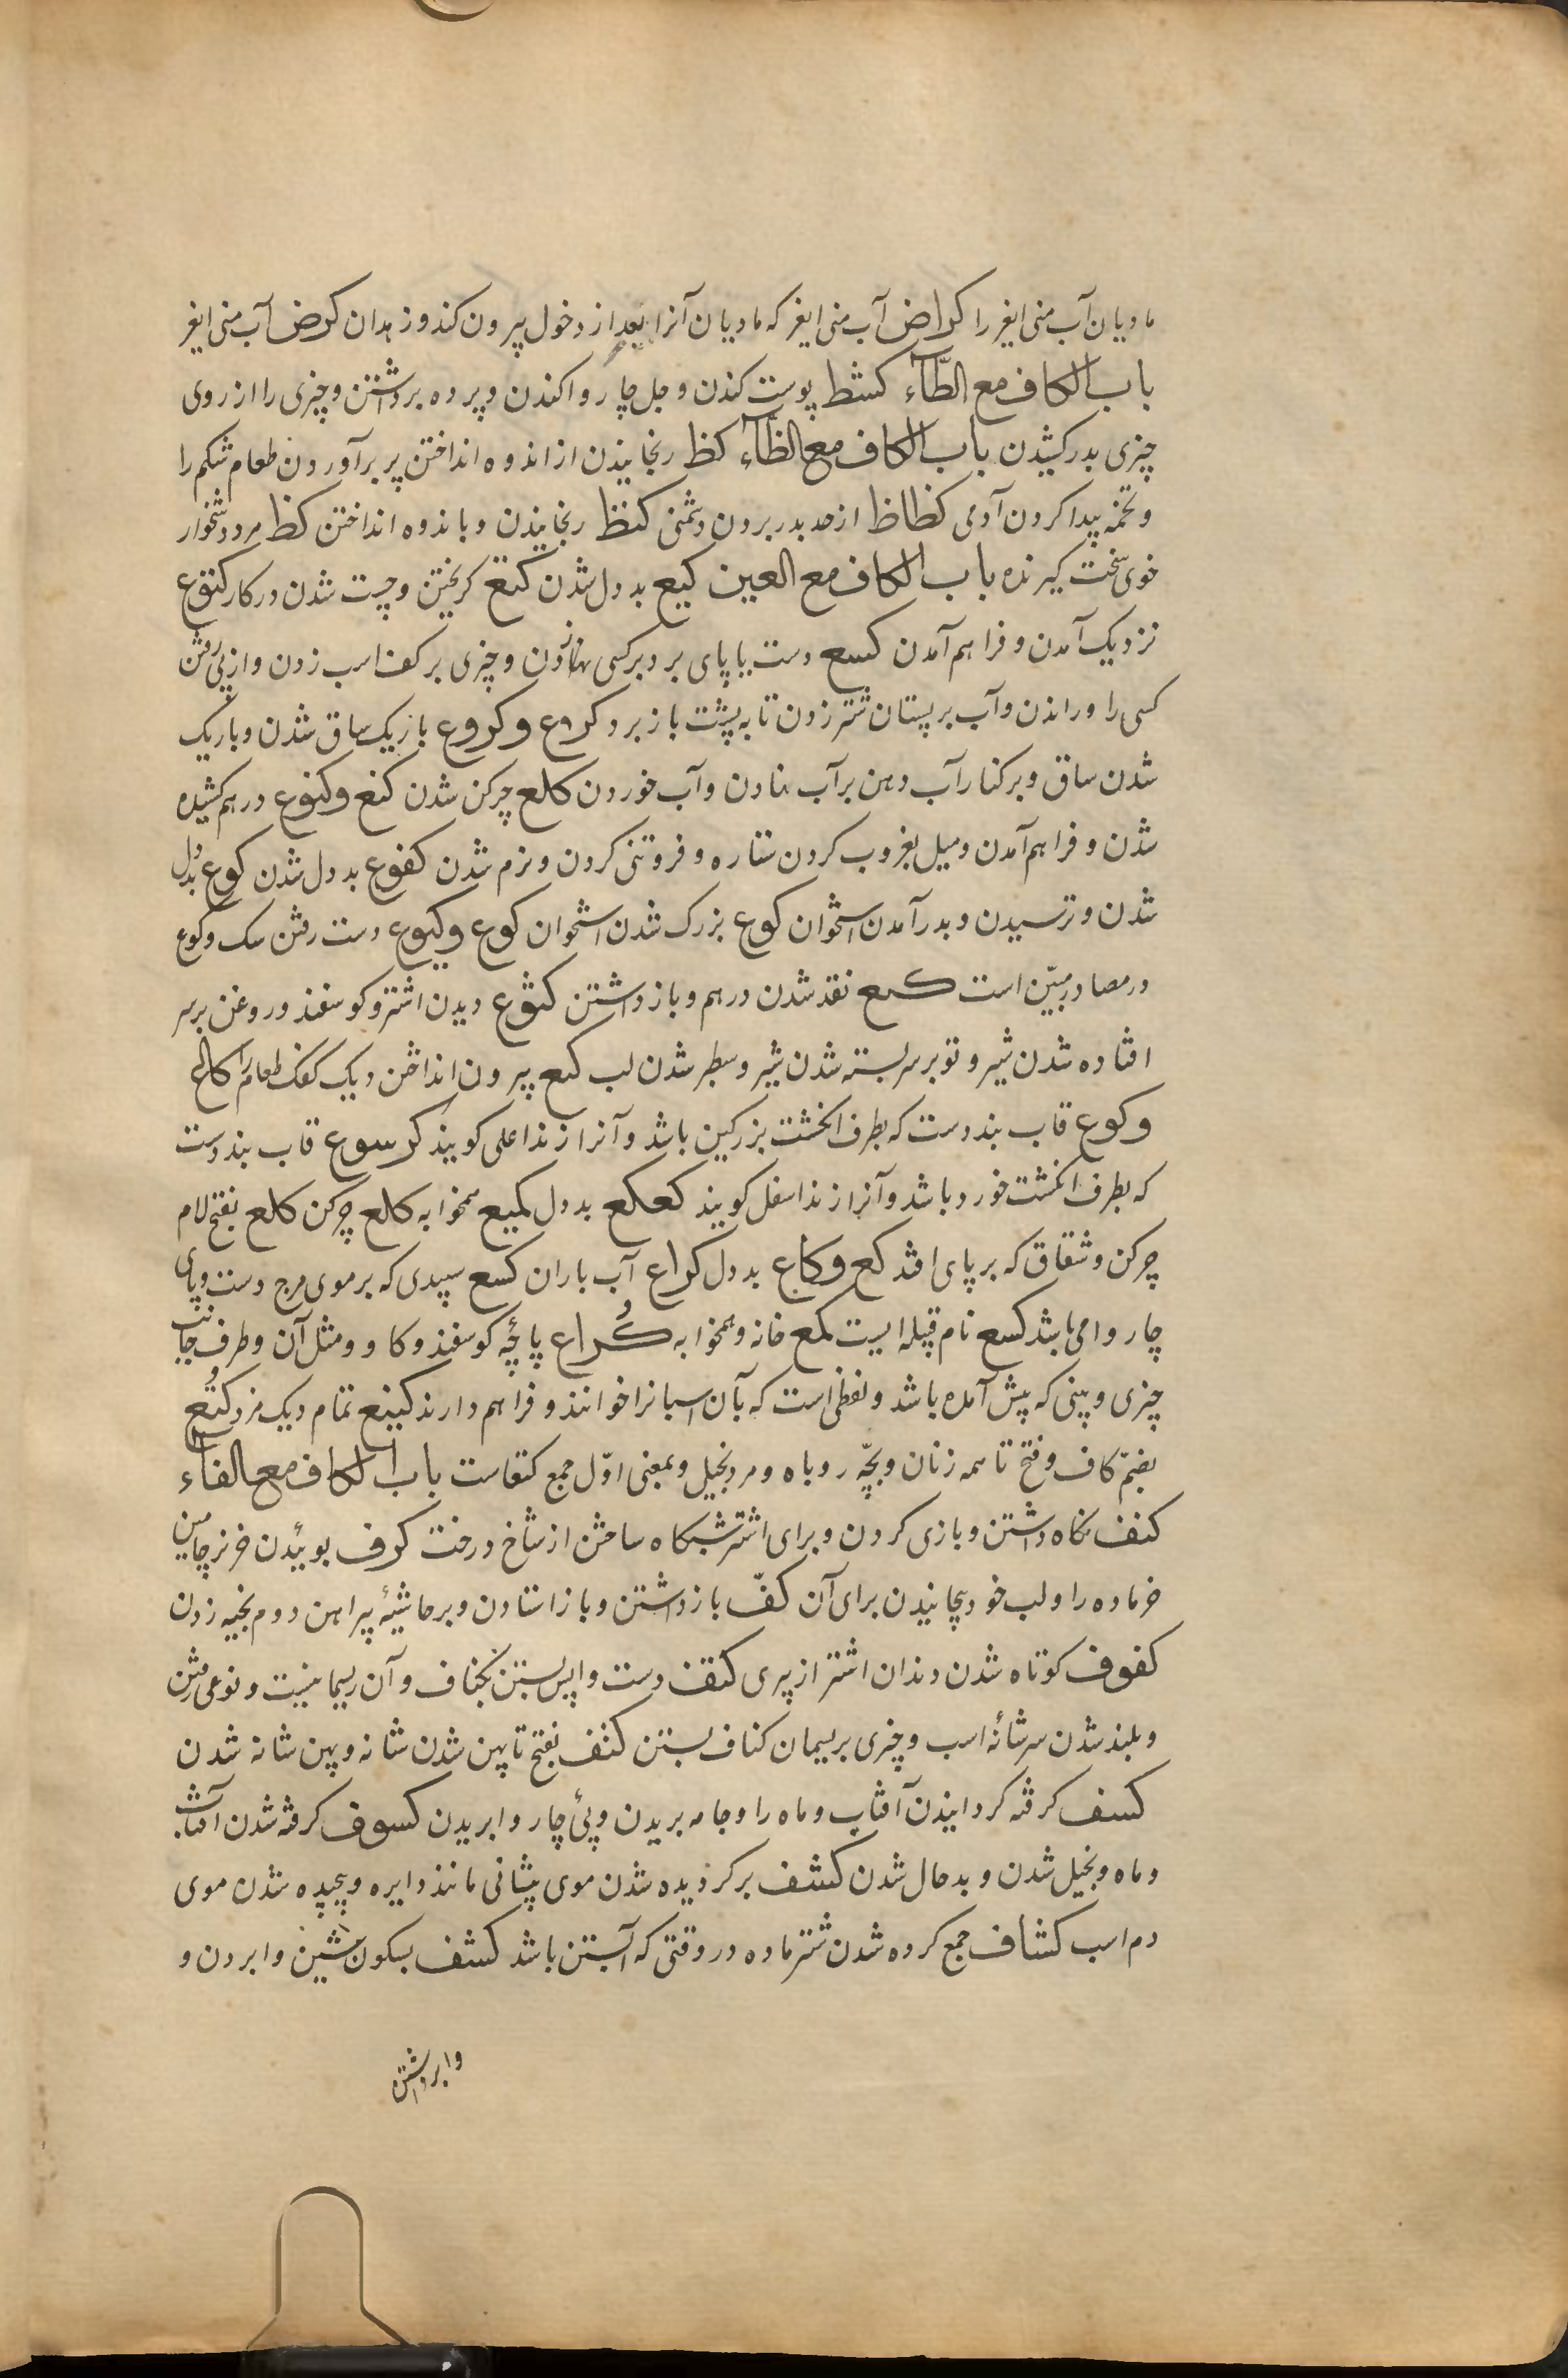 مادیان آب منی ایغر را کراض آب منی ایغر که مادیان آنرا بعد از دخول بیرون کند و زهدان کرض آب منی ایغر
باب الکاف مع الطّآء کشط پوست کندن و جل چاروا کندن و پرده برداشتن و چیزی را از روی
چیزی بدر کشیدن باب الکاف مع الظآء کظ رنجانیدن از اندوه انداختن پر برآوردن طعام شکم را
و تخمه پیدا کردن آدمی کظاظ از حد بدر بردن دشمنی کنظ رنجانیدن و باندوه انداختن کظ مرد دشخوار
خوی سخت گیرنده باب الکاف مع العین کیع بد دل شدن کتع گریختن و چست شدن در کار کنوع
نزدیک آمدن و فراهم آمدن کسع دست یا پای بر دبر کسی زدن و چیزی بر کفت اسب زدن و از پی رفتن
کسی را و راندن و آب بر پستان شتر زدن تا به پشت باز برد کرع و کروع باریک ساق شدن و باریک
شدن ساق و بر کنار آب دهن بر آب نهادن و آب خوردن کلع چرکن شدن کنع و کنوع درهم کشیده
شدن و فراهم آمدن و میل بغروب کردن ستاره و فروتنی کردن و نرم شدن کفوع بد دل شدن کوع بد دل
شدن و ترسیدن و بدر آمدن استخوان کوع بزرگ شدن استخوان کوع و کیوع دست رفتن سک و کوع
در مصادر مبیّن است کسع نقد شدن درهم و باز داشتن کثوع دیدن اشتر و کوسفند و روغن بر سر
افتاده شدن شیر و توبر سر بسته شدن شیر و سطبر شدن لب کثع بیرون انداختن دیک کفک طعام را کالع
و کوع قاب بند دست که بطرف انکشت بزرکین باشد و آنرا زند اعلی کویند کرسوع قاب بند دست
که بطرف انکشت خورد باشد و آنرا زند اسفل کویند کعکع بد دل کمیع همخوابه کلع چرکن کلع بفتح لام
چرکن و شقاق که بر پای افتد کع و کاع بد دل کراع آب باران کسع سپیدی که بر موی مرج دست و پای
چاروا می باشد کسع نام قبیله ایست کمع خانه و همخوابه کُراع پاچهٔ کوسفند و کاو و مثل آن و طرف جانب
چیزی و بینی که پیش آمده باشد و لفظی است که بآن اسبانرا خوانند و فراهم دارند کتیع تمام دیک مزد کُتع
بضمّ کاف و فتح تا سمه زنان و بچّه روباه و مرد بخیل و بمعنی اوّل جمع کتعاست باب الکاف مع الفآء
کنف نگاه داشتن و بازی کردن و برای اشتر شبگاه ساختن از شاخ درخت کرف بوئیدن خر نر جامین
خر ماده را و لب خود پیچانیدن برای آن کفّ باز داشتن و باز استادن و بر حاشیهٔ پیراهن دوم بخیه زدن
کفوف کوتاه شدن دندان اشتر از پیری کتف دست واپس بستن بکتاف و آن ریسمانیست و نوعی رفتن
و بلند شدن سر شانهٔ اسب و چیزی بریسمان کتاف بستن کتف بفتح تا پهن شدن شانه و پهن شانه شدن
کسف کرفته کردانیدن آفتاب و ماه را و جامه بریدن و پئ چاروا بریدن کسوف کرفته شدن آفتاب
و ماه و بخیل شدن و بد حال شدن کشف بر کردیده شدن موی پیشانی مانند دایره و پیچیده شدن موی
دم اسب کشاف جمع کرده شدن شتر ماده در وقتی که آبستن باشد کشف بسکون شین وا بردن و
وابرداشتن